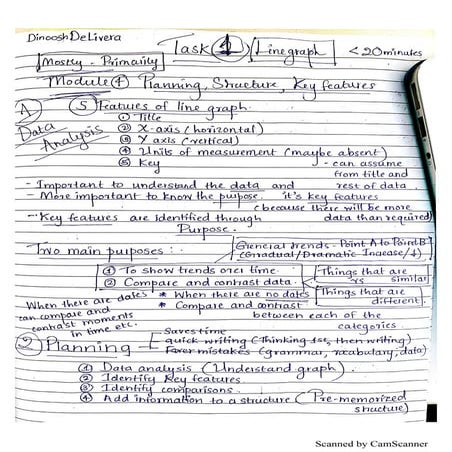 Dinoosh DeLivera
Task 1 Linegraph <20 minutes
Mostly - Primarily
Module 4 Planning, Structure, Key features
A Data Analysis
5 Features of line graph.
1 Title
2 X-axis (horizontal)
3 Y axis (vertical)
4 Units of measurement (maybe absent)
5 Key - can assume from title and rest of data.
- Important to understand the data and
- More important to know the purpose. it's key features
(because there will be more data than required)
- Key features are identified through Purpose.
Two main purposes:
General trends - Point A to Point B
(Gradual/Dramatic Incease/↓)
1 To show trends over time.
2 Compare and contrast data.
Things that are similar
vs
Things that are different.
When there are dates can compare and contrast moments in time etc.
* When there are no dates
* Compare and contrast between each of the categories.
2 Planning
Saves time
quick writing (Thinking 1st, then writing)
Fewer mistakes (grammar, vocabulary, data)
1 Data analysis (Understand graph).
2 Identify Key features
3 Identify comparisons.
4 Add information to a structure (Pre-memorized structure)
Scanned by CamScanner